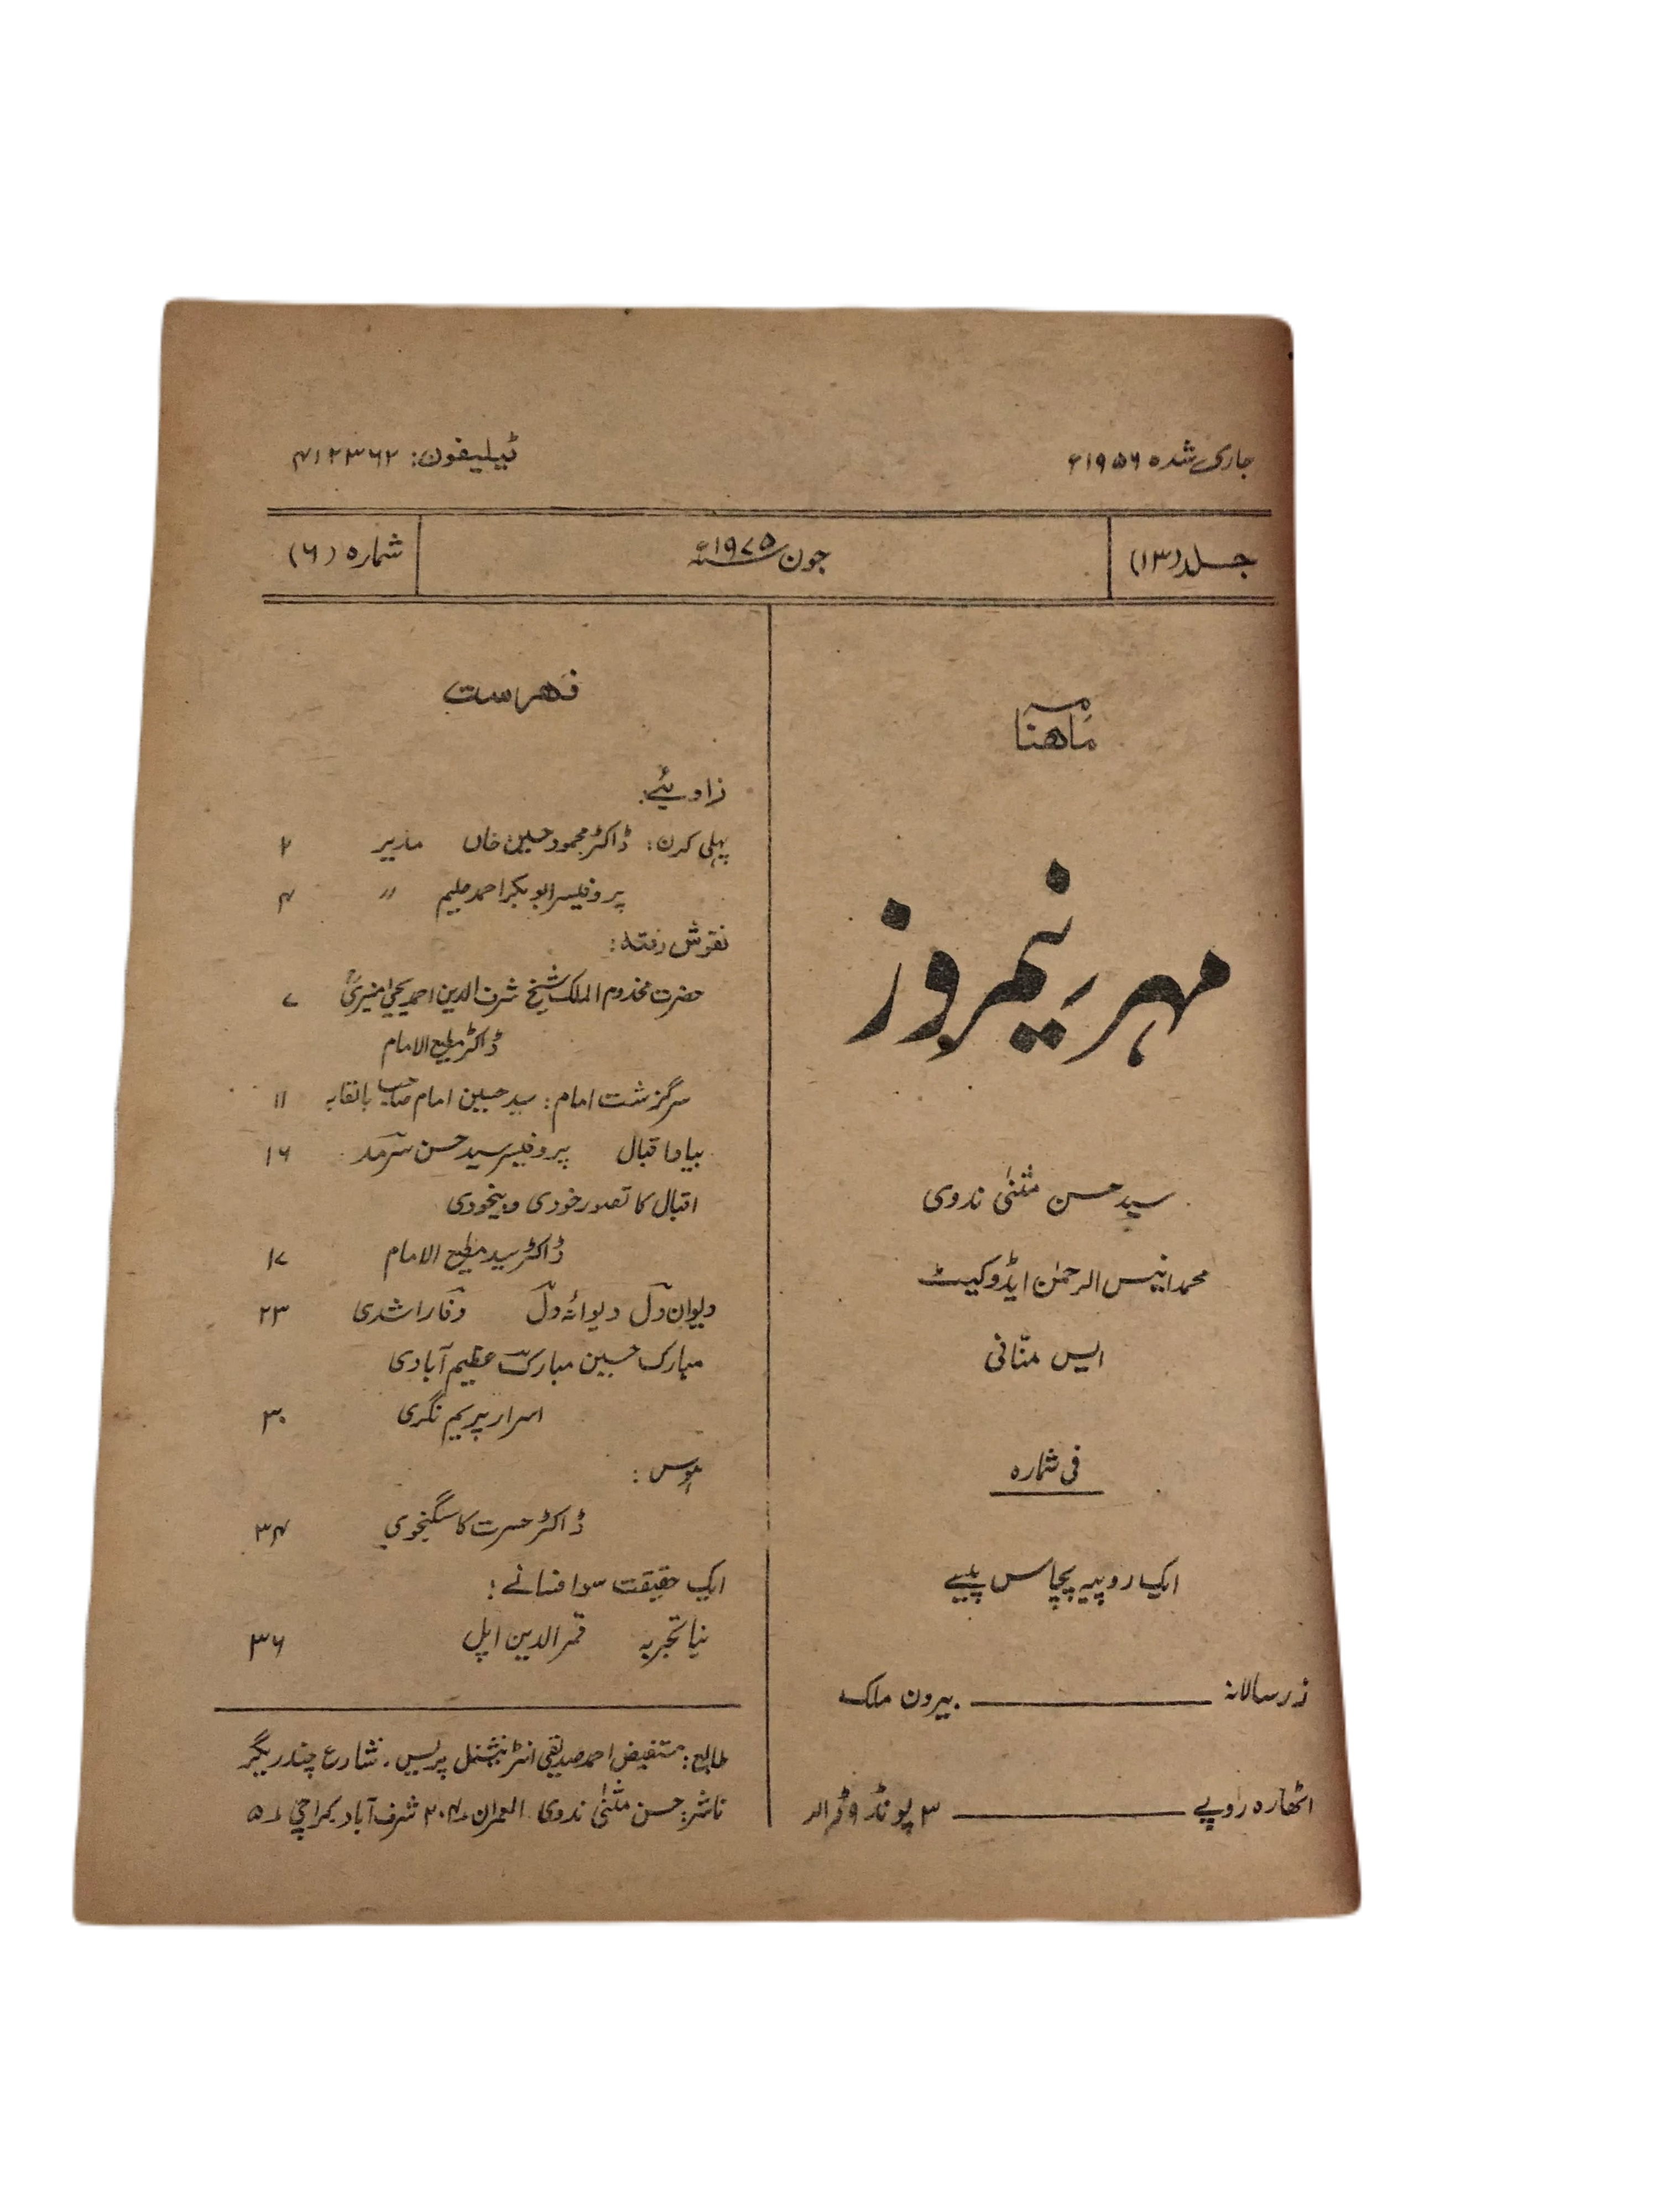 جاری شدہ ۱۹۵۶ء
ٹیلیفون: ۴۱۲۳۶۲
جلد (۱۳)
جون ۱۹۷۵ء
شمارہ (۶)
ماھنامہ
مہر نیمروز
سید حسن مثنیٰ ندوی
محمد انیس الرحمٰن ایڈوکیٹ
ایس منّانی
فی شمارہ
ایک روپیہ پچاس پیسے
زر سالانہ ــــــ بیرون ملک
اٹھارہ روپے ــــــ ۳ پونڈ ۹ ڈالر
فھرست
زاویئے:
پہلی کرن: ڈاکٹر محمود حسین خاں مدیر ۲
پروفیسر ابوبکر احمد حلیم " ۴
نقوش رفتہ:
حضرت مخدوم الملک شیخ شرف الدین احمد یحییٰ منیریؒ ۷
ڈاکٹر مطیع الامام
سرگزشت امام: سید حسین امام صاحب بالقابہ ۱۱
بیاد اقبال پروفیسر سید حسن سرمد ۱۶
اقبال کا تصور خودی و بیخودی
ڈاکٹر سید مطیع الامام ۱۷
دیوان دل دیوانہ دل وفا راشدی ۲۳
مبارک حسین مبارک عظیم آبادی
اسرار پریم نگری ۳۰
ڈاکٹر حسرت کاسگنجوی ۳۴
ایک حقیقت سو افسانے:
نیا تجربہ قمر الدین اپل ۳۶
طابع: مستفیض احمد صدیقی انٹرنیشنل پریس۔ شارع چندریگر
ناشر: حسن مثنیٰ ندوی۔ العمران ۲۰۴ شرف آباد کراچی ۵